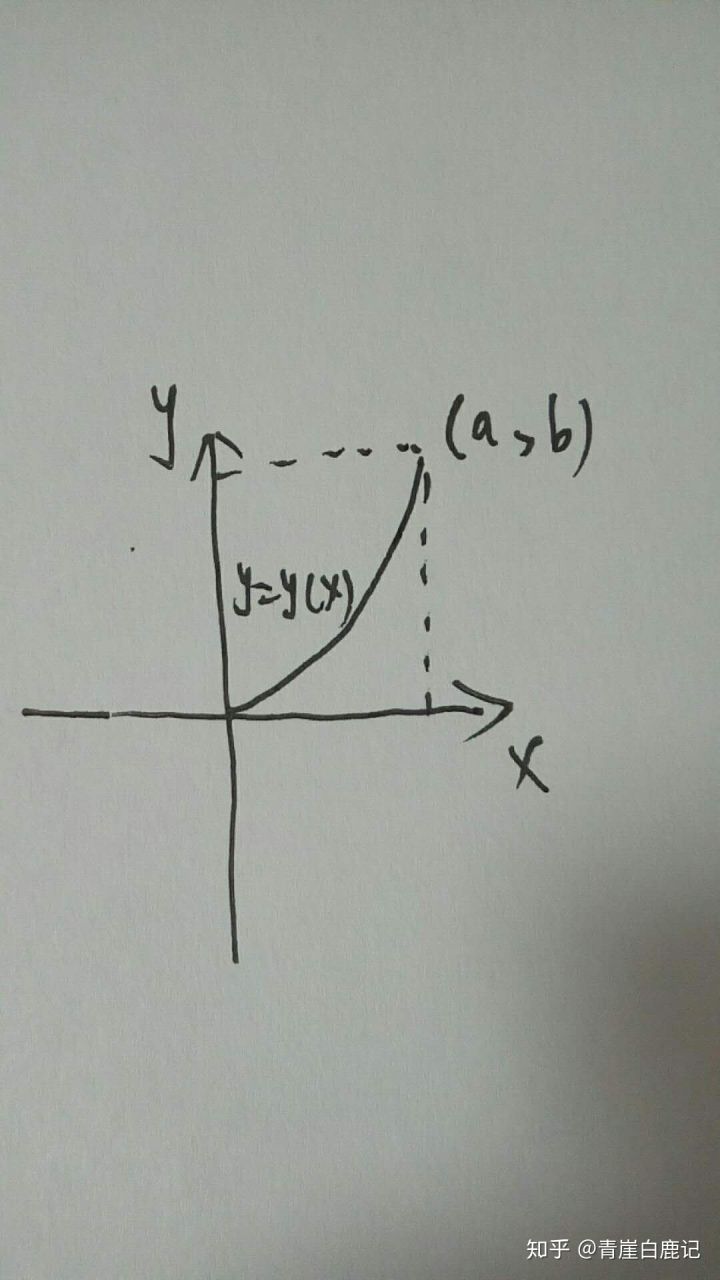 y
(a,b)
y=y(x)
x
知乎 @青崖白鹿记